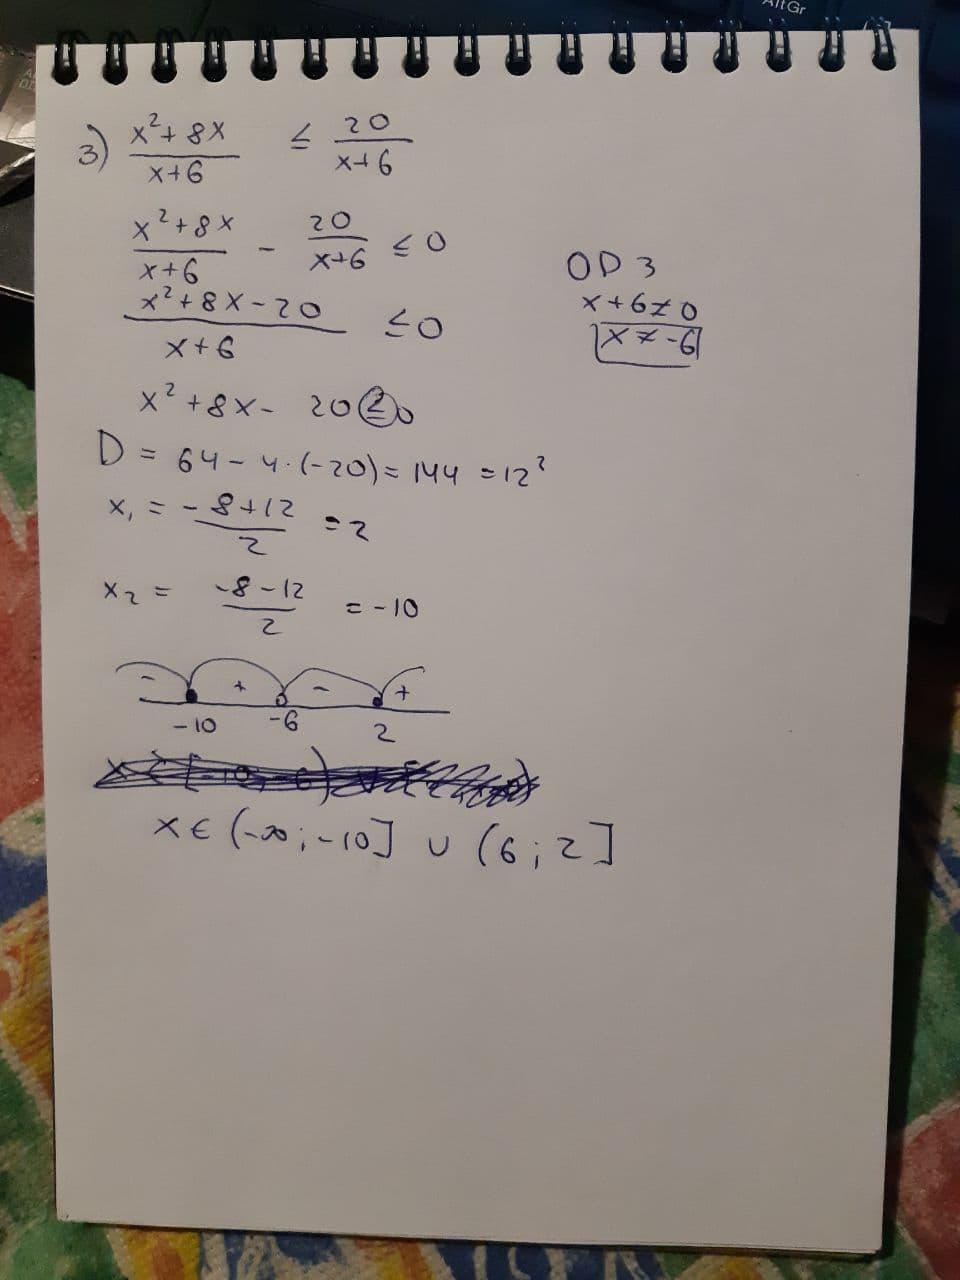 AltGr
3) x²+8x / x+6 ≤ 20 / x+6
x²+8x / x+6 - 20 / x+6 ≤ 0
x²+8x-20 / x+6 ≤0
ОДЗ
x+6≠0
x≠-6
x²+8x- 20 0
D = 64-4·(-20)=144 =12²
x₁ = -8+12 / 2 =2
x₂ = -8-12 / 2 =-10
- + - +
-10 -6 2
x∈(-∞;-10] ∪ (6;2]